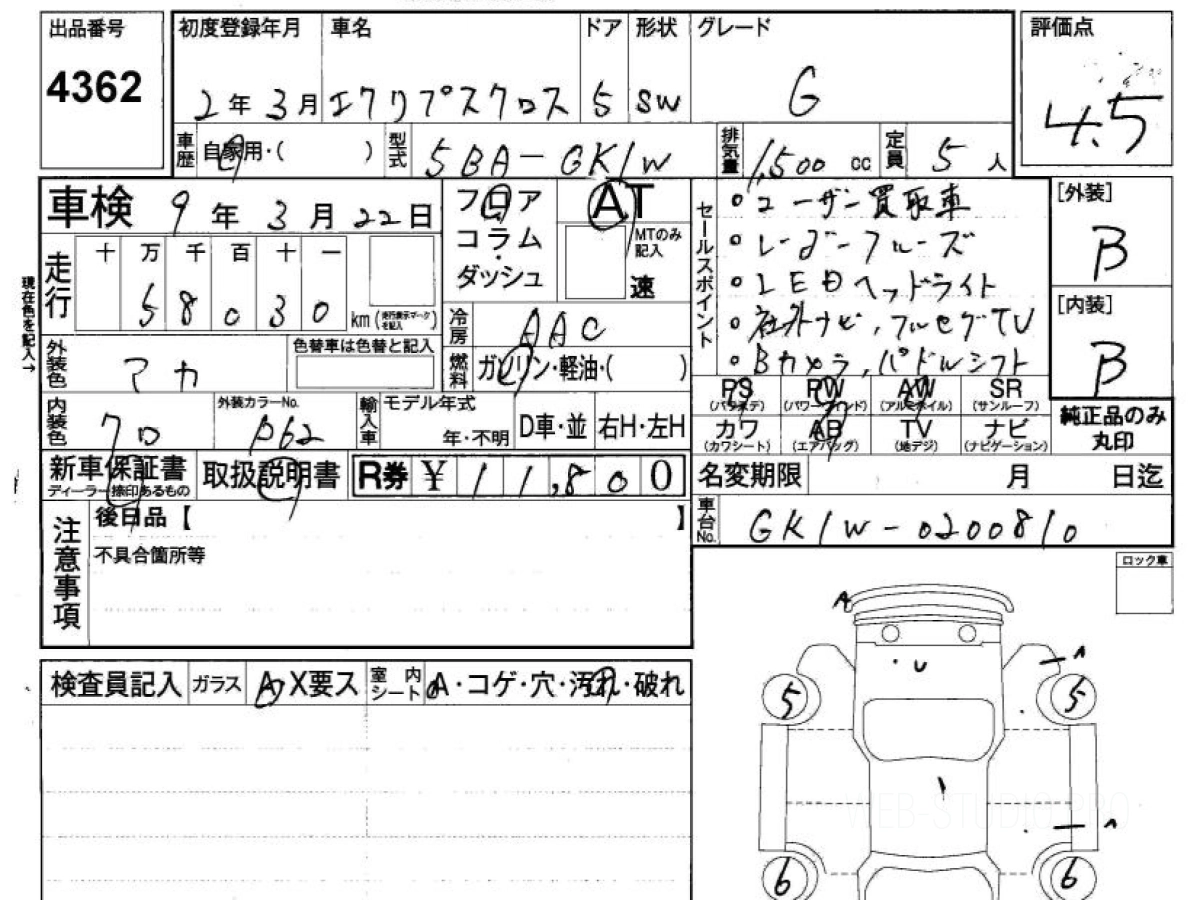 出品番号
4362
初度登録年月 車名 ドア 形状 グレード
2年3月 エクリプスクロス 5 SW G
評価点
4.5
車歴 自家用・( ) 型式 5BA-GK1W 排気量 1,500 cc 定員 5人
車検 9年3月22日
フロア
コラム
ダッシュ
AT
MTのみ記入
速
セールスポイント
・ユーザー買取車
・レーダークルーズ
・LEDヘッドライト
・社外ナビ,フルセグTV
・Bカメラ,パドルシフト
[外装]
B
[内装]
B
現在色を記入→
走行 十 万 千 百 十 一
58030 km (走行表示マークを記入)
冷房 AAC
燃料 ガソリン・軽油・( )
外装色 マカ 色替車は色替と記入
PS PW AW SR
(パワステ) (パワーウインド) (アルミホイル) (サンルーフ)
カワ AB TV ナビ
(カワシート) (エアバッグ) (地デジ) (ナビゲーション)
純正品のみ
丸印
内装色 クロ 外装カラーNo. P62 輸入車 モデル年式 年・不明 D車・並 右H・左H
新車保証書 取扱説明書 R券 ¥ 11,800
ディーラー捺印あるもの
名変期限 月 日迄
車台No. GK1W-0200810
注意事項
後日品【 】
不具合箇所等
ロック車
検査員記入 ガラス A X要ス 室内シート A・コゲ・穴・汚れ・破れ
A
U
A
5 5
A
6 6
WEB-STUDIO.PRO